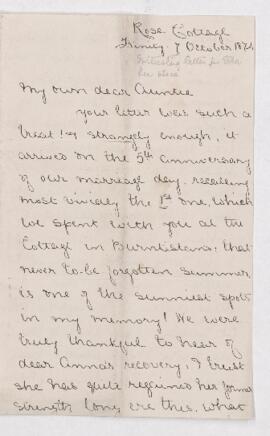 Rose Cottage
Trinity 7 October 1874
Interesting letter for
her
My own dear Auntie
your letter was such a
treat! & strangely enough, it
arrived on the 5th anniversary
of our marriage day. recalling
most vividly the 1st one, which
we spent with you at the
Cottage in Burntisland; that
never to-be forgotten summer
is one of the sunniest spots
in my memory! We were
truly thankful to hear of
dear Anna's recovery, & trust
she has quite regained her former
strength long ere this. What